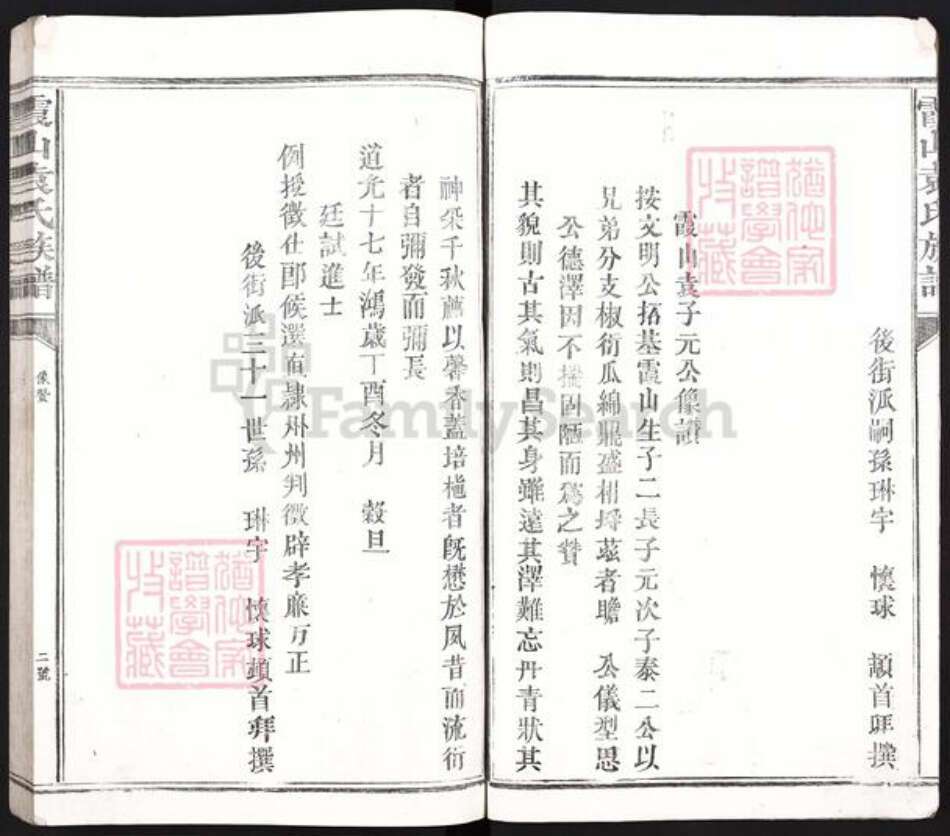 後街派嗣孫琳宇 懷球 顓首拜撰
霞山袁子元公像讚
按文明公拓基霞山生子二長子元次子泰二公以
兄弟分支椒衍瓜綿覢盛相埒茲者瞻 公儀型思
公德澤因不揣固陋而為之贊
其貌則古其氣則昌其身雖遠其澤難忘丹青狀其
神采千秋薦以馨香蓋培植者旣懋於夙昔而流衍
者自彌發而彌長
道光十七年鴻歲丁酉冬月 穀旦
廷試進士
例授徵仕郎候選直隸州州判徵辟孝廉方正
後街派三十一世孫 琳宇 懷球頓首拜撰
霞山袁氏族譜
像贊
二號
霞山袁氏族譜
猶他家
譜學會
收藏
猶他家
譜學會
收藏
FamilySearch